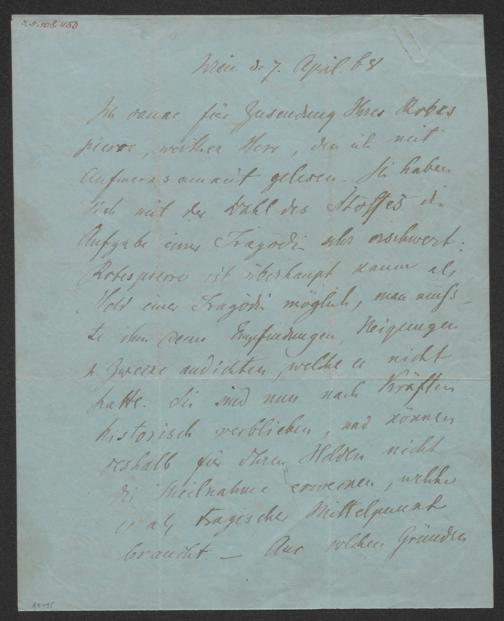 Wien d. 7. April. 68
Ich danke für Zusendung Ihres Robes
pierre, werther Herr, den ich mit
Aufmerksamkeit gelesen. Sie haben
Sich mit der Wahl des Stoffes die
Aufgabe einer Tragödie sehr erschwert:
Robespierre ist überhaupt kaum als
Held einer Tragödie möglich, man müß-
te ihm denn Empfindungen, Neigungen
& Zwecke andichten, welche er nicht
hatte. Sie sind nun nach Kräften
historisch verblieben, und können
deshalb für Ihren Helden nicht
die Theilnahme erwecken, welche
er als tragischer Mittelpunkt
braucht. — Aus solchen Gründen